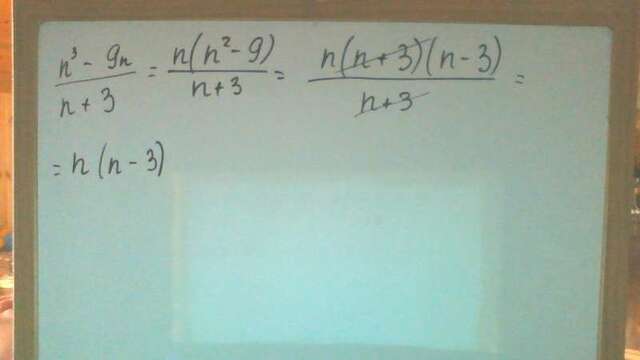 n³ - 9n / n + 3 = n(n² - 9) / n + 3 = n(n + 3)(n - 3) / n + 3 =
= n(n - 3)